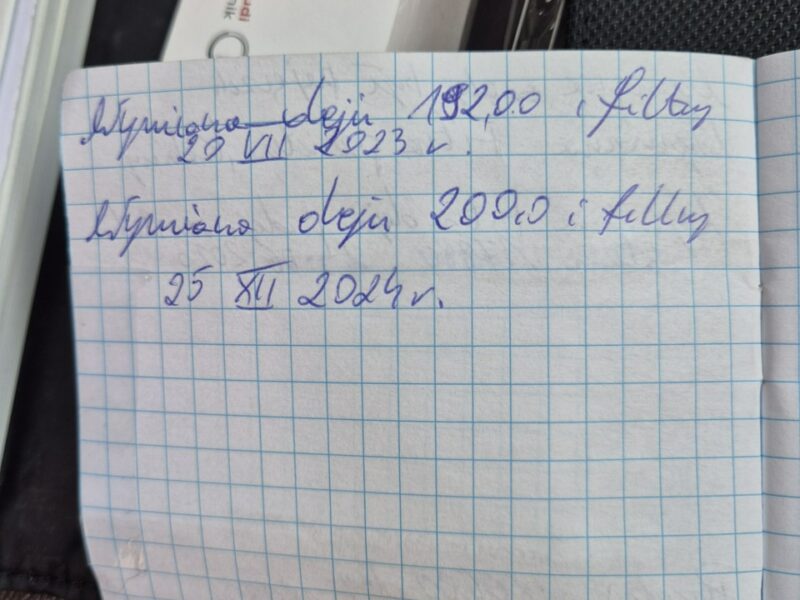 nik
Wymiana oleju 192,00 i filtry
20 VII 2023 r.
Wymiana oleju 200,0 i filtry
25 XII 2024 r.